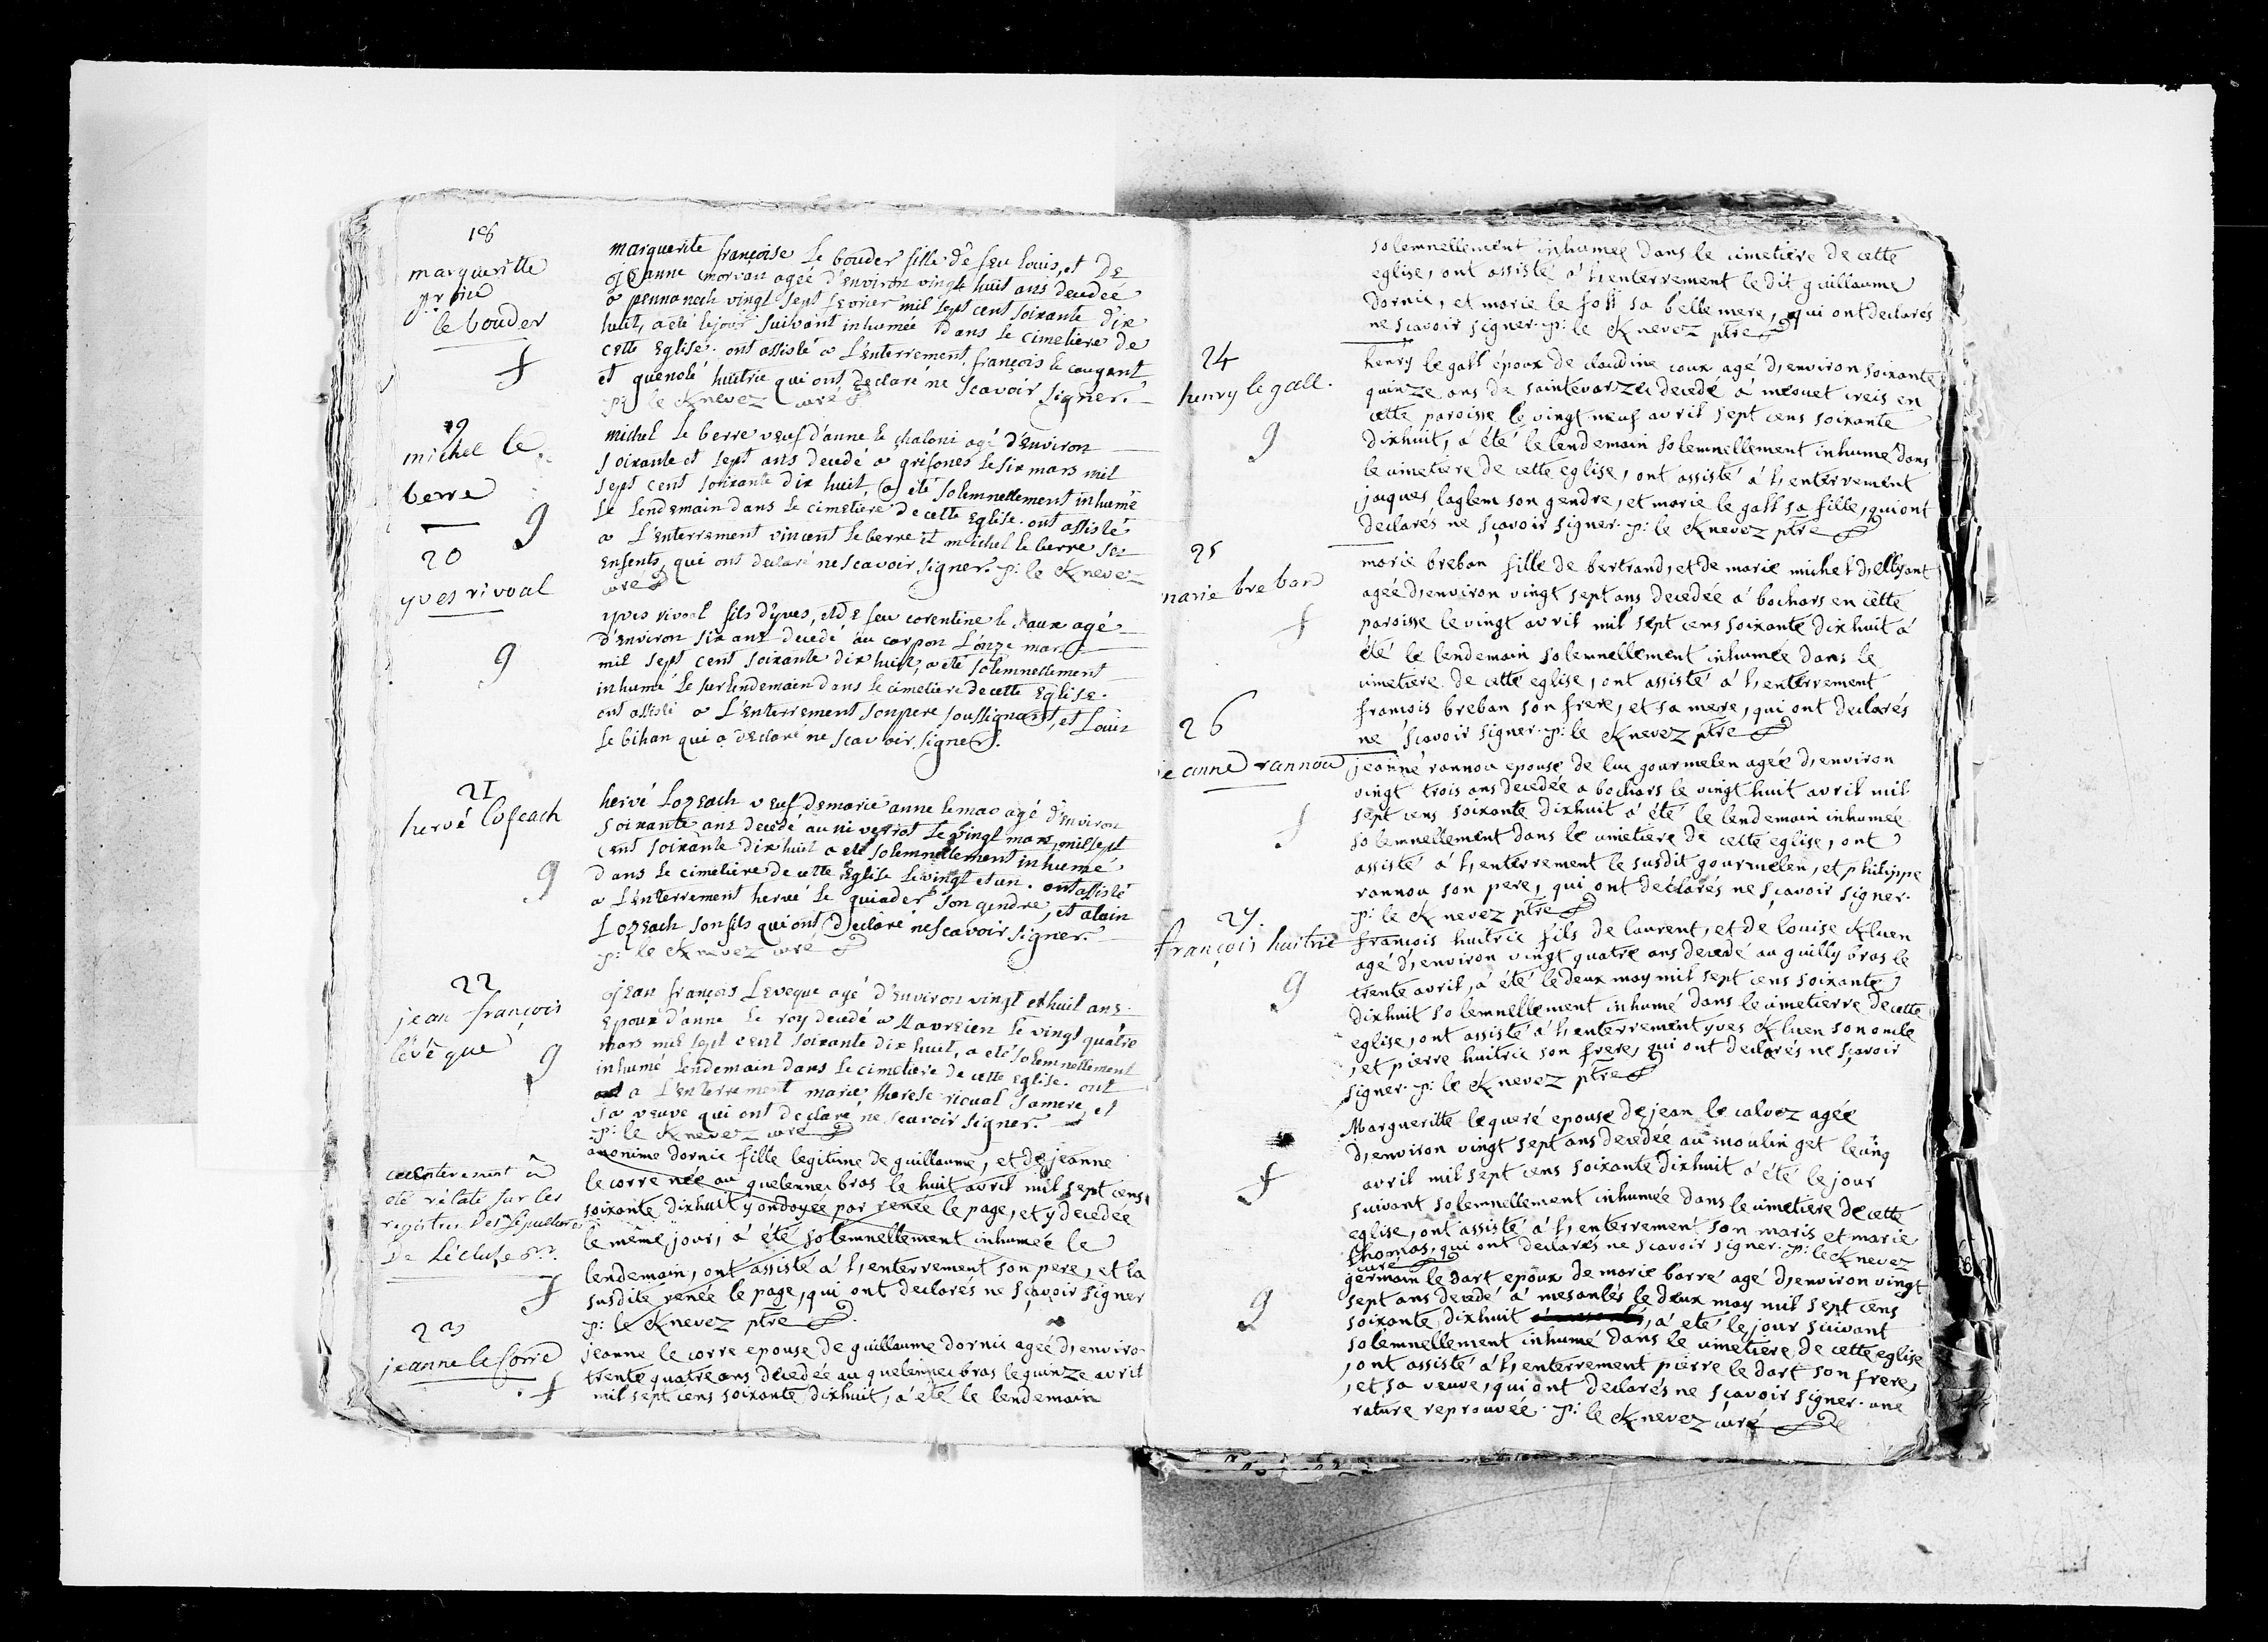 18
margueritte
le bouder
f
marguerite françoise Le bouder fille de feu Louis, et De
jeanne morvan ageé d'environ vingt huit ans decedeé
a pennanech vingt sept fevrier mil sept cent soixante dix
huit, a eté lejour suivant inhumée dans le cimetiere de
cette Eglise. ont assisté a L'enterrement françois le caugant
et quenolé huitric qui ont declaré ne scavoir signer.
p: le Knevez curé
19
michel le
berre
g
michel Le berre veuf d'anne le chaloni agé d'environ
soixante et sept ans decedé a grifones le six mars mil
sept cent soixante dix huit, a eté solemnellement inhumé
Le Lendemain dans Le cimetiere de cette Eglise. ont assisté
a L'enterrement vincent le berre et michel le berre ses
Enfents, qui ont declaré ne scavoir signer. p: le Knevez
curé
20
yves rivoal
g
yves rivoal fils d'yves, et de feu corentine le faux agé
d'environ six ans decedé au carpon L'onze mars
mil sept cent soixante dix huit, a eté solemnellement
inhumé le surlendemain dans le cimetiere de cette Eglise.
ont assisté a L'Enterrement son pere soussignant, et Louis
Le bihan qui a declaré ne scavoir signer.
21
hervé Lozeach
g
hervé Lozeach veuf de marie anne le mao agé d'environ
soixante ans decedé au ni verrot le vingt mars, mil sept
cent soixante dix huit a eté solemnellement inhumé
dans le cimetiere de cette Eglise le vingt et un. ont assisté
a L'enterrement hervé Le quiader son gendre, et alain
Lozeach son fils qui ont declaré ne scavoir signer.
p: le Knevez curé
22
jean françois
lévêque
g
jean françois Leveque agé d'environ vingt et huit ans
Epoux d'anne Le roy decedé a le vingt quatre
mars mil sept cent soixante dix huit, a eté solemnellement
inhumé Lendemain dans Le cimetiere de cette Eglise. ont
a L'enterrement marie therese ricual sa mere, et
sa veuve qui ont declaré ne scavoir signer.
p: le Knevez curé
enterrement a
eté rélaté sur les
registres des sepultures
de
f
anonime dornic fille legitime de guillaume, et de jeanne
le corre née au quelennec bras le huit avril mil sept cens
soixante dixhuit y ondoyée par renée le page, et y decedée
le même jour, á été solemnellement inhumée le
lendemain, ont assisté á l'enterrement son pere, et la
susdite renée le page, qui ont declarés ne sçavoir signer
p: le Knevez ptre
23
jeanne le corre
f
jeanne le corre epouse de guillaume dornic ageé d'environ
trente quatre ans decedée au quelennec bras le quinze avril
mil sept cens soixante dixhuit, á été le lendemain
solemnellement inhumée dans le cimetiere de cette
eglise, ont assisté á l'enterrement le dit guillaume
dornic, et marie le foll sa belle mere, qui ont declarés
ne sçavoir signer. p: le Knevez ptre
24
henry le gall.
g
henry le gall époux de claudine coux agé d'environ soixante
quinze ans de saintevarzec decedé á meouet creis en
cette paroisse le vingt neuf avril sept cens soixante
dixhuit, á été le lendemain solemnellement inhumé dans
le cimetiere de cette eglise, ont assisté á l'enterrement
jaques laglem son gendre, et marie le gall sa fille, qui ont
declarés ne sçavoir signer. p: le Knevez ptre
25
marie breban
f
marie breban fille de bertrand, et de marie michel d'elliant
ageé d'environ vingt sept ans decedée á bochars en cette
paroisse le vingt avril mil sept cens soixante dixhuit á
été le lendemain solemnellement inhumée dans le
cimetiere de cette eglise, ont assisté á l'enterrement
francois breban son frere, et sa mere, qui ont declarés
ne sçavoir signer. p: le Knevez ptre
26
jeanne rannou
f
jeanne rannou epouse de luc gourmelen ageé d'environ
vingt trois ans decedée a bochars le vingt huit avril mil
sept cens soixante dixhuit á été le lendemain inhumée
solemnellement dans le cimetiere de cette eglise, ont
assisté á l'enterrement le susdit gourmelen, et philippe
rannou son pere, qui ont declarés ne sçavoir signer.
p: le Knevez ptre
27.
françois huitric
g
francois huitric fils de laurent, et de louise Kluen
agé d'environ vingt quatre ans decedé au guilly bras le
trente avril, á été le deux may mil sept cens soixante
dixhuit solemnellement inhumé dans le cimetierre de cette
eglise, ont assisté á l'enterrement yves Kluen son oncle
, et pierre huitric son frere, qui ont declarés ne sçavoir
signer. p: le Knevez ptre
f
Margueritte le queré epouse de jean le calvez agée
d'environ vingt sept ans decedée au moulin get le cinq
avril mil sept cens soixante dixhuit á été le jour
suivant solemnellement inhumée dans le cimetiere de cette
eglise, ont assisté á l'enterrement son maris et marie
thomas, qui ont declarés ne scavoir signer. p: le Knevez
curé
g
germain le dart epoux de marie barré agé d'environ vingt
sept ans decedé á mesanlés le deux may mil sept cens
soixante dixhuit, á eté le jour suivant
solemnellement inhumé dans le cimetiere de cette eglise
, ont assisté á l'enterrement pierre le dart son frere,
, et sa veuve, qui ont declarés ne sçavoir signer. une
rature reprouvée. p: le Knevez curé